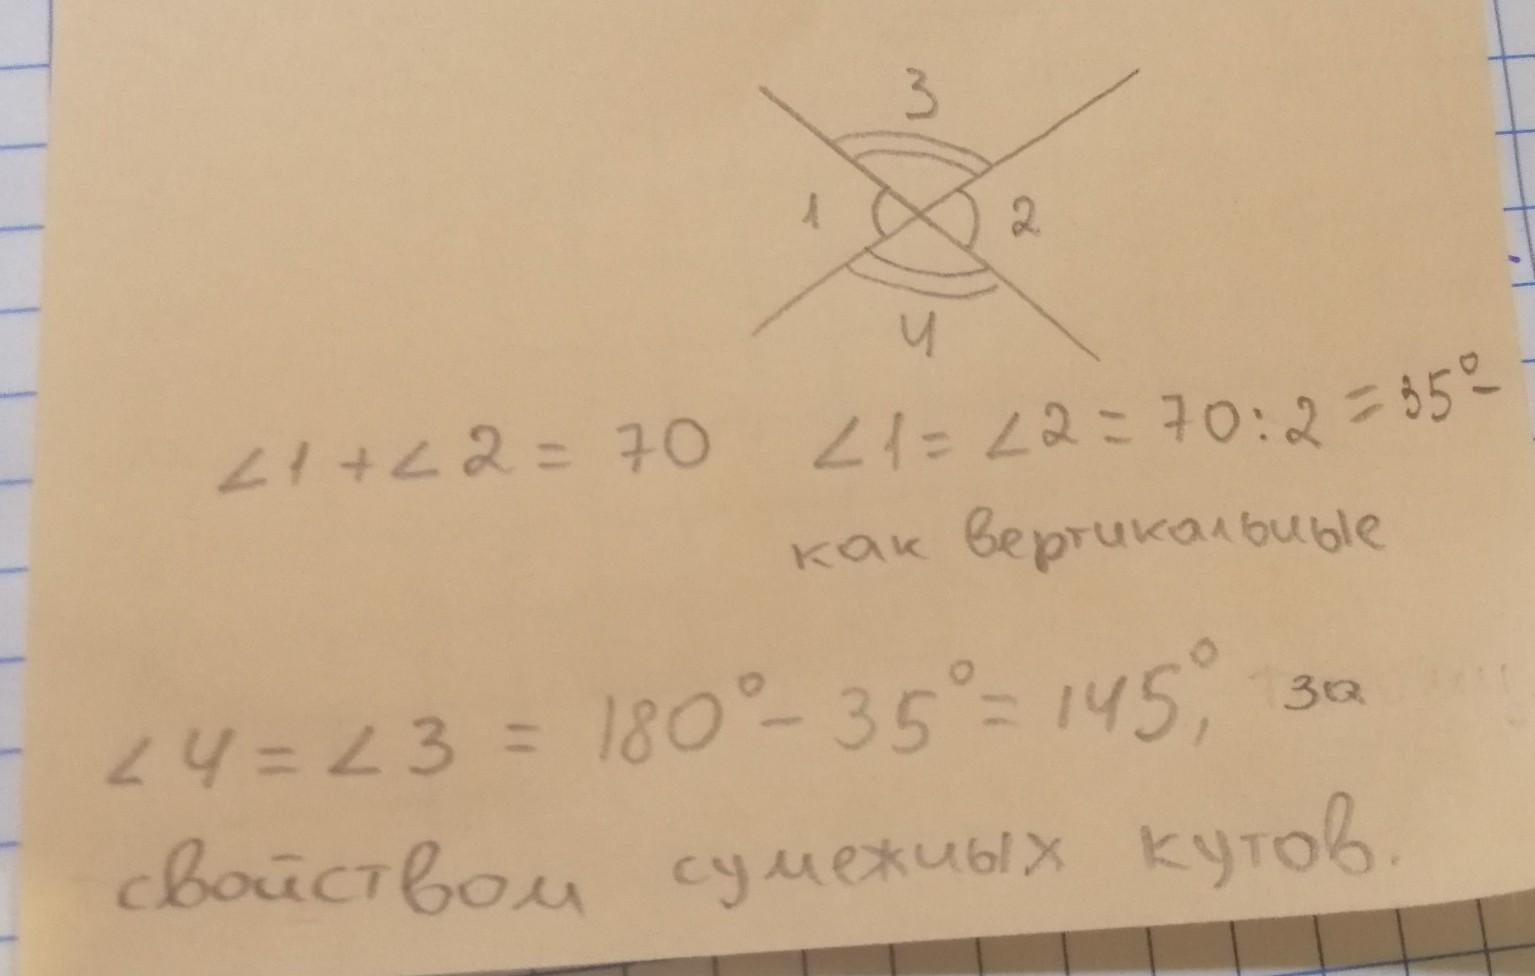 3
1 2
4
∠1 + ∠2 = 70 ∠1 = ∠2 = 70 : 2 = 35° -
как вертикальные
∠4 = ∠3 = 180° - 35° = 145°, за
свойством сумежных кутов.